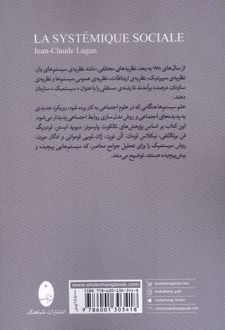 LA SYSTÉMIQUE SOCIALE
Jean-Claude Lugan
از سال‌های ۱۹۸۰ به بعد، نظریه‌های مختلفی، مانند نظریه‌ی سیستم‌های باز،
نظریه‌ی سیبرنتیک، نظریه‌ی ارتباطات، نظریه‌ی عمومی سیستم‌ها و نظریه‌ی
سازمان، درصدد برآمدند تا رشته‌ی مستقلی را با عنوان «سیستمیک» سامان
دهند.
علم سیستم‌ها هنگامی که در علوم اجتماعی به کار برده شود، رویکرد جدیدی
به پدیده‌های اجتماعی و روش مدل‌سازی روابط اجتماعی پدیدار می‌شود.
این کتاب بر اساس پژوهش‌های تالکوت پارسونز، دیوید ایستن، لودویگ
فن برتالانفی، نیکلاس لومان، آلن تورن، ژان-لویی لوموانی و ادگار مورن،
روش سیستمیک را برای تحلیل جوامع معاصر، که سیستم‌هایی پیچیده و
بیش‌پیچیده هستند، توضیح می‌دهد.
www.shabahangbook.com
shabahang_pub
shabahang_books
www.shabahangbook.com
ISBN: 978-600-130-341-8
9 786001 303418
انتشارات شباهنگ